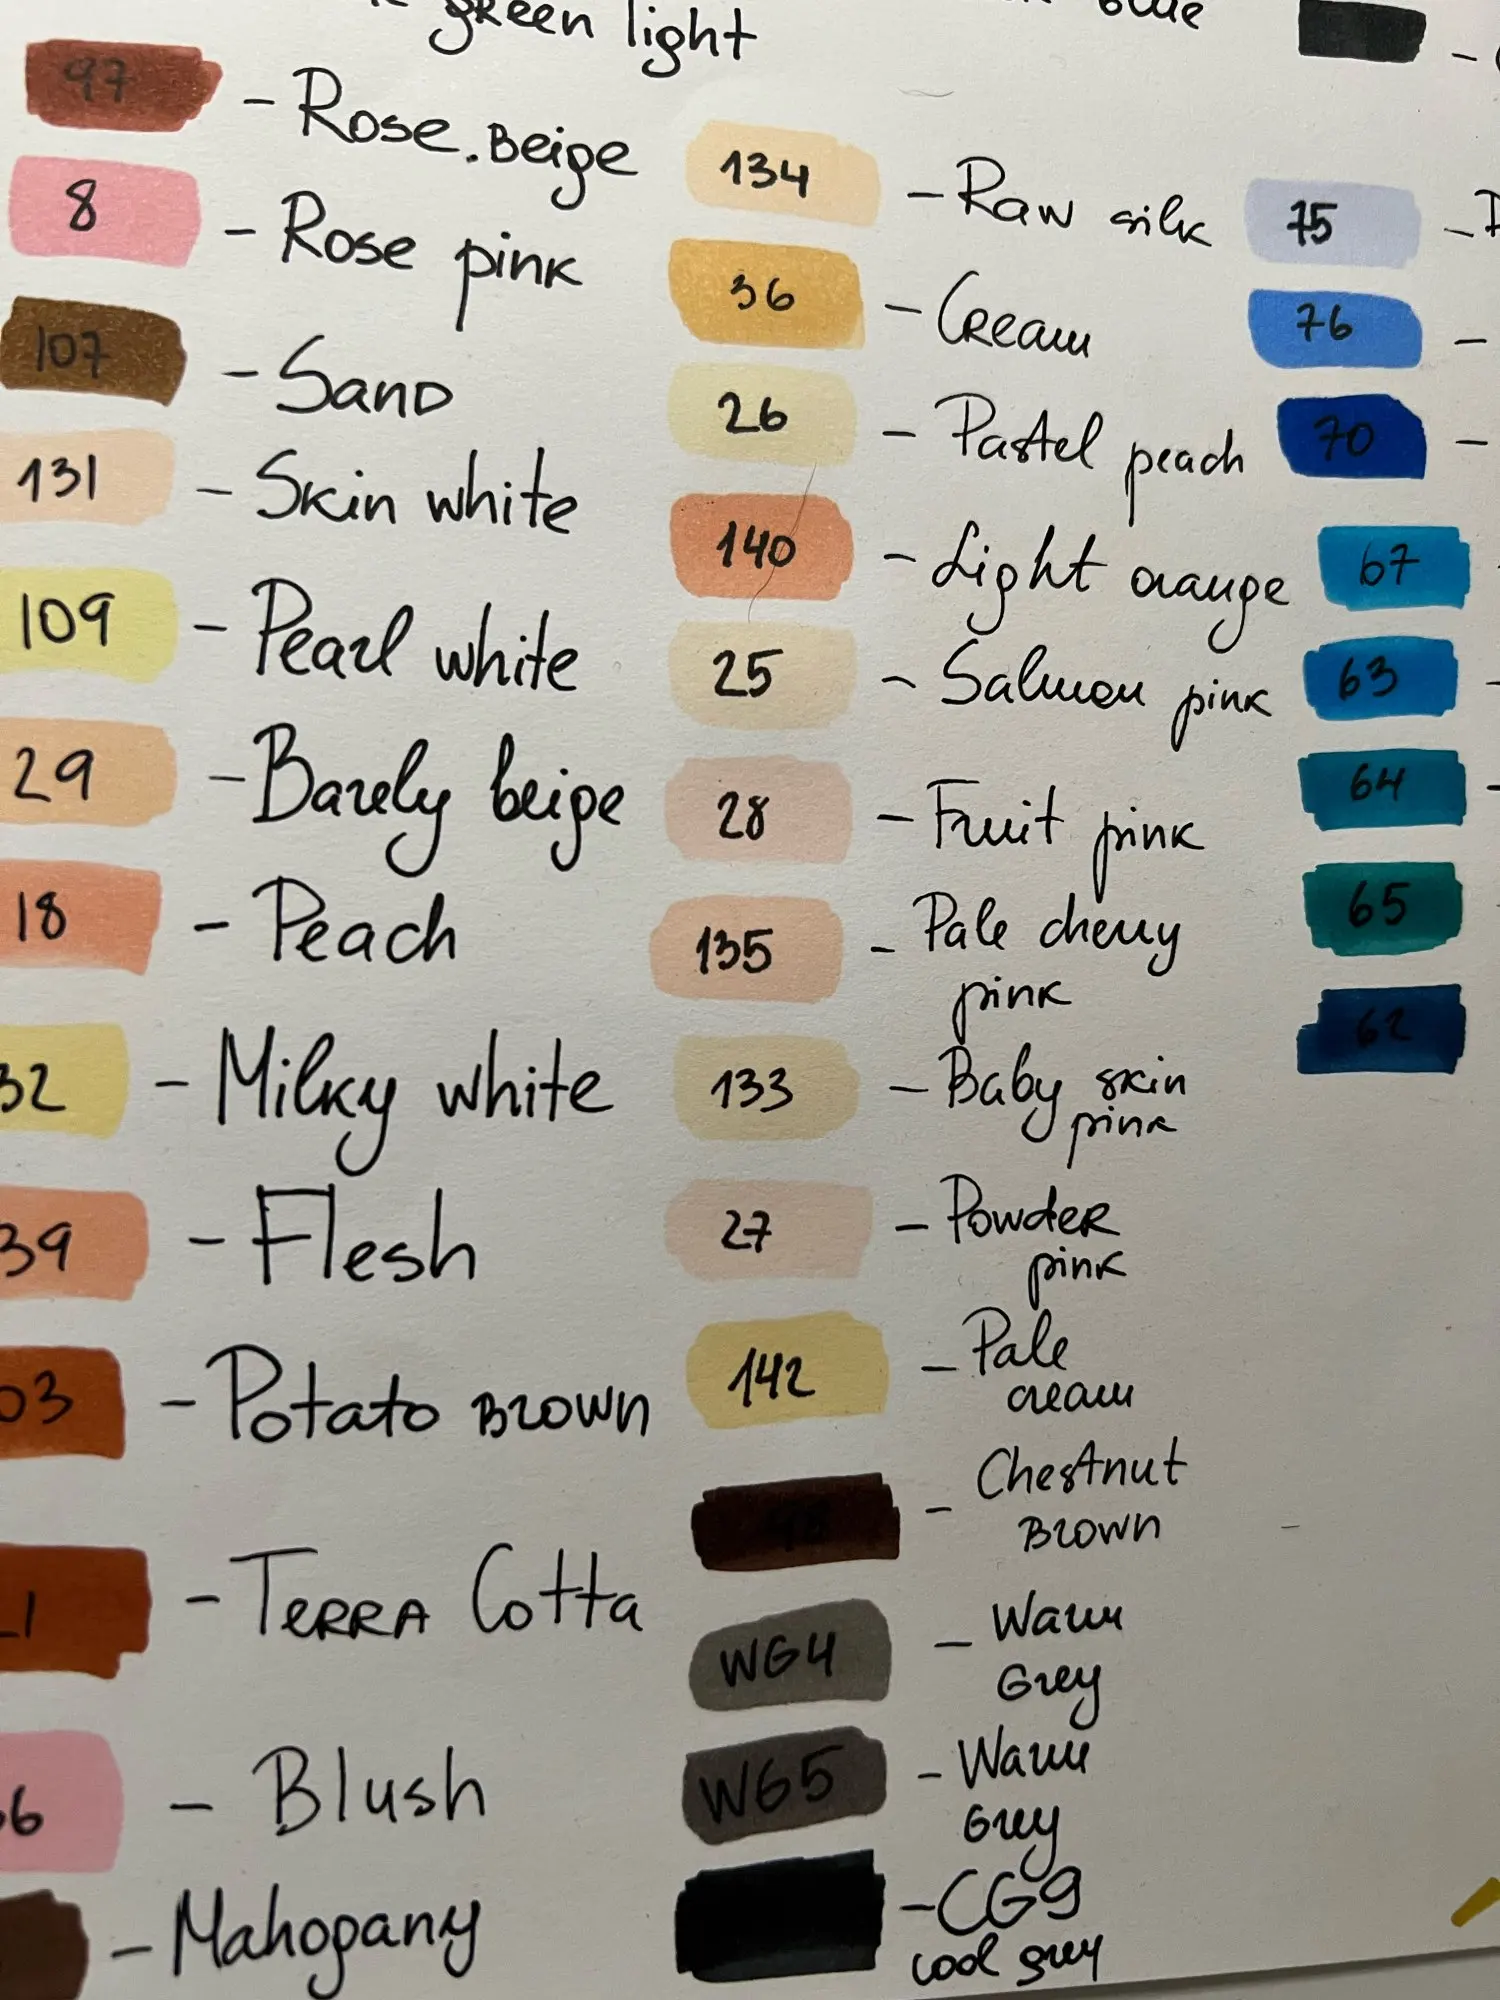 green light
blue
97 - Rose.Beige
8 - Rose pink
107 - Sand
131 - Skin white
109 - Pearl white
29 - Barely beige
18 - Peach
32 - Milky white
39 - Flesh
03 - Potato Brown
1 - Terra Cotta
6 - Blush
- Mahogany
134 - Raw silk
36 - Cream
26 - Pastel peach
140 - Light orange
25 - Salmon pink
28 - Fruit pink
135 - Pale cherry
pink
133 - Baby skin
pink
27 - Powder
pink
142 - Pale
cream
98 - Chestnut
Brown
WG4 - Warm
Grey
WG5 - Warm
Grey
- CG9
cool grey
75 -
76 -
70 -
67
63
64
65
62